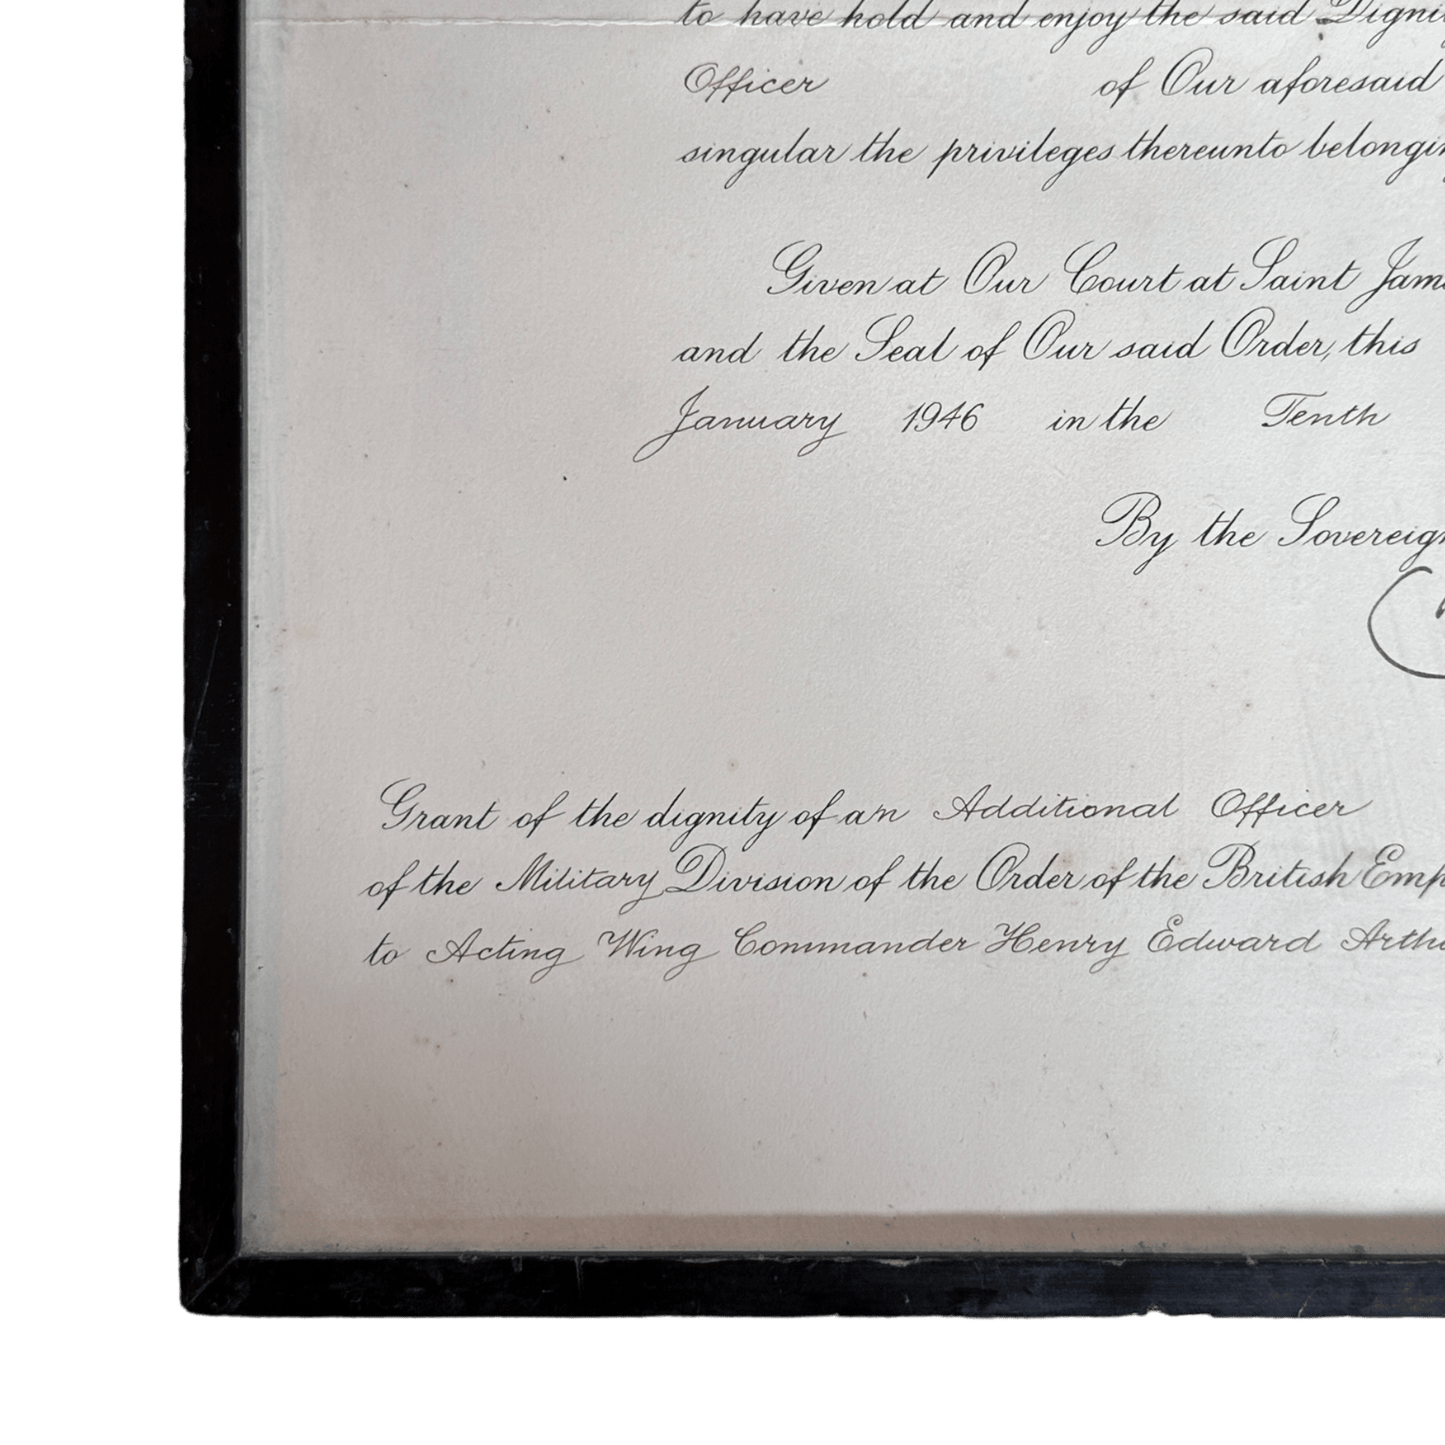 to have hold and enjoy the said
Officer of Our aforesaid
singular the privileges thereunto
Given at Our Court at Saint
and the Seal of Our said Order, this
January 1946 in the Tenth
By the
Grant of the dignity of an Additional Officer
of the Military Division of the Order of the British
to Acting Wing Commander Henry Edward